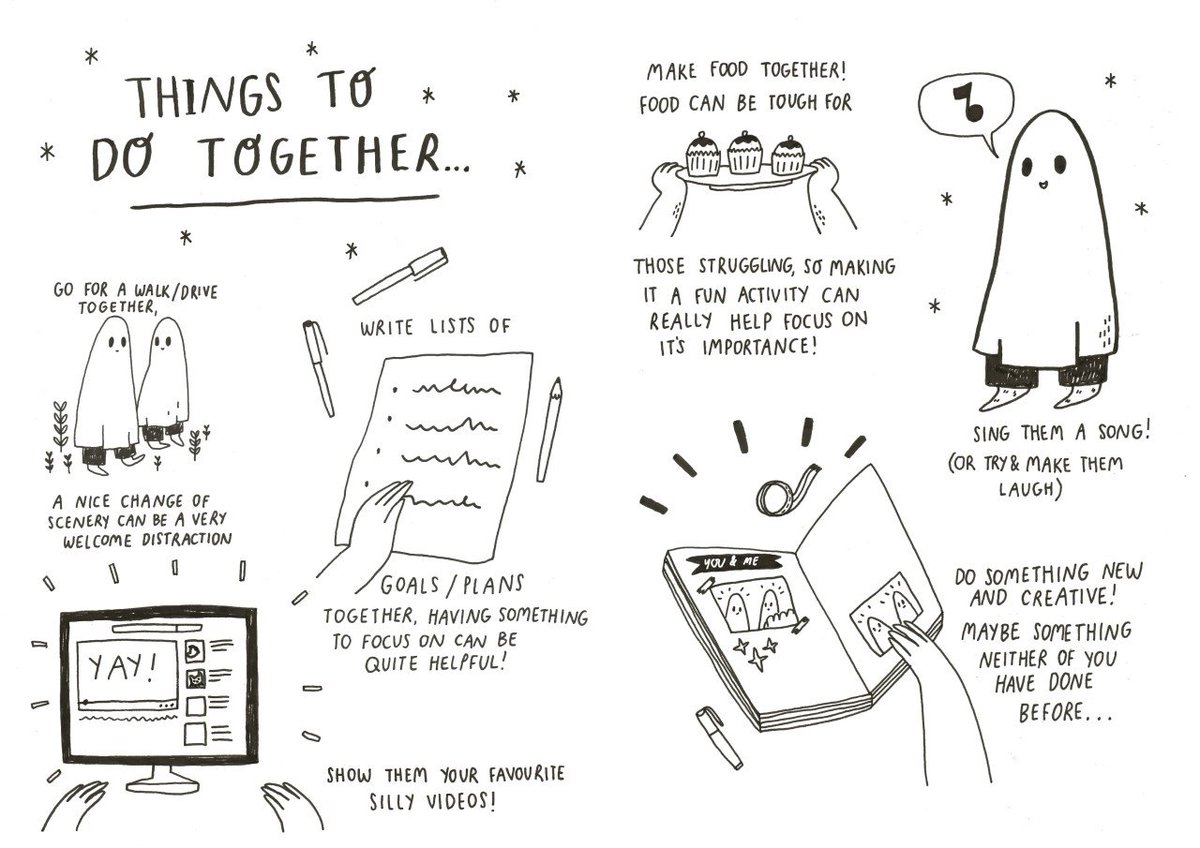 THINGS TO
DO TOGETHER...
GO FOR A WALK/DRIVE
TOGETHER,
A NICE CHANGE OF
SCENERY CAN BE A VERY
WELCOME DISTRACTION
WRITE LISTS OF
GOALS/PLANS
TOGETHER, HAVING SOMETHING
TO FOCUS ON CAN BE
QUITE HELPFUL!
YAY!
SHOW THEM YOUR FAVOURITE
SILLY VIDEOS!
MAKE FOOD TOGETHER!
FOOD CAN BE TOUGH FOR
THOSE STRUGGLING, SO MAKING
IT A FUN ACTIVITY CAN
REALLY HELP FOCUS ON
IT'S IMPORTANCE!
SING THEM A SONG!
(OR TRY & MAKE THEM
LAUGH)
YOU & ME
DO SOMETHING NEW
AND CREATIVE!
MAYBE SOMETHING
NEITHER OF YOU
HAVE DONE
BEFORE...